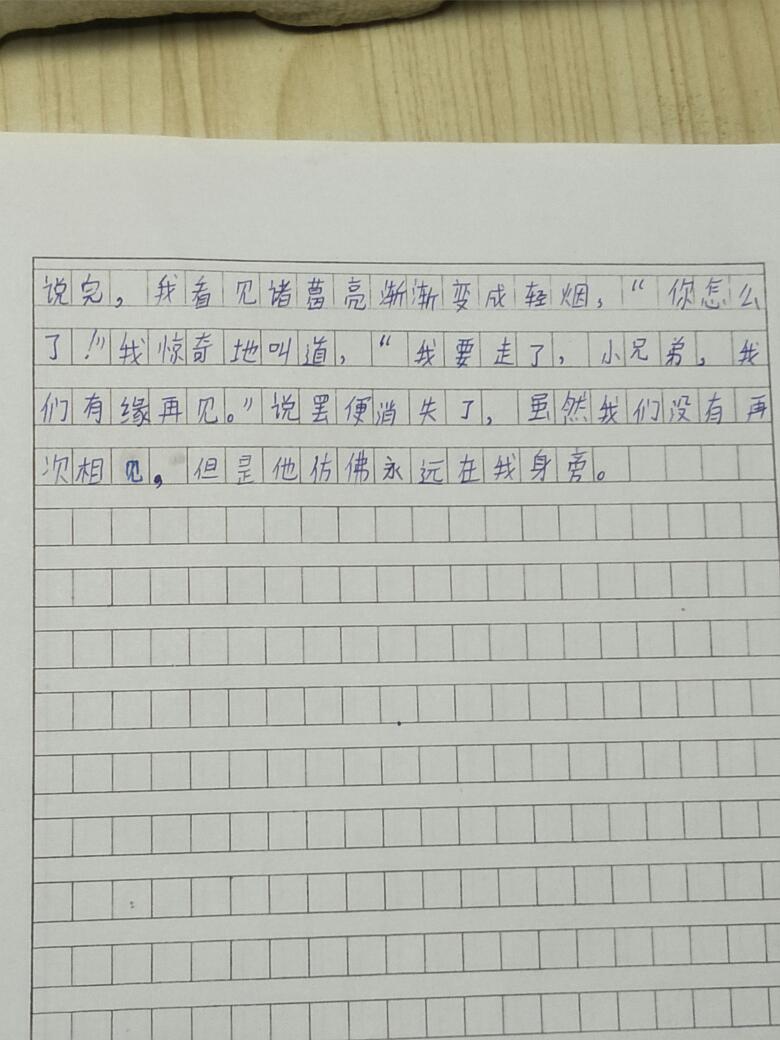 说完，我看见诸葛亮渐渐变成轻烟，“你怎么
了！”我惊奇地叫道，“我要走了，小兄弟，我
们有缘再见。”说罢便消失了，虽然我们没有再
次相见，但是他仿佛永远在我身旁。